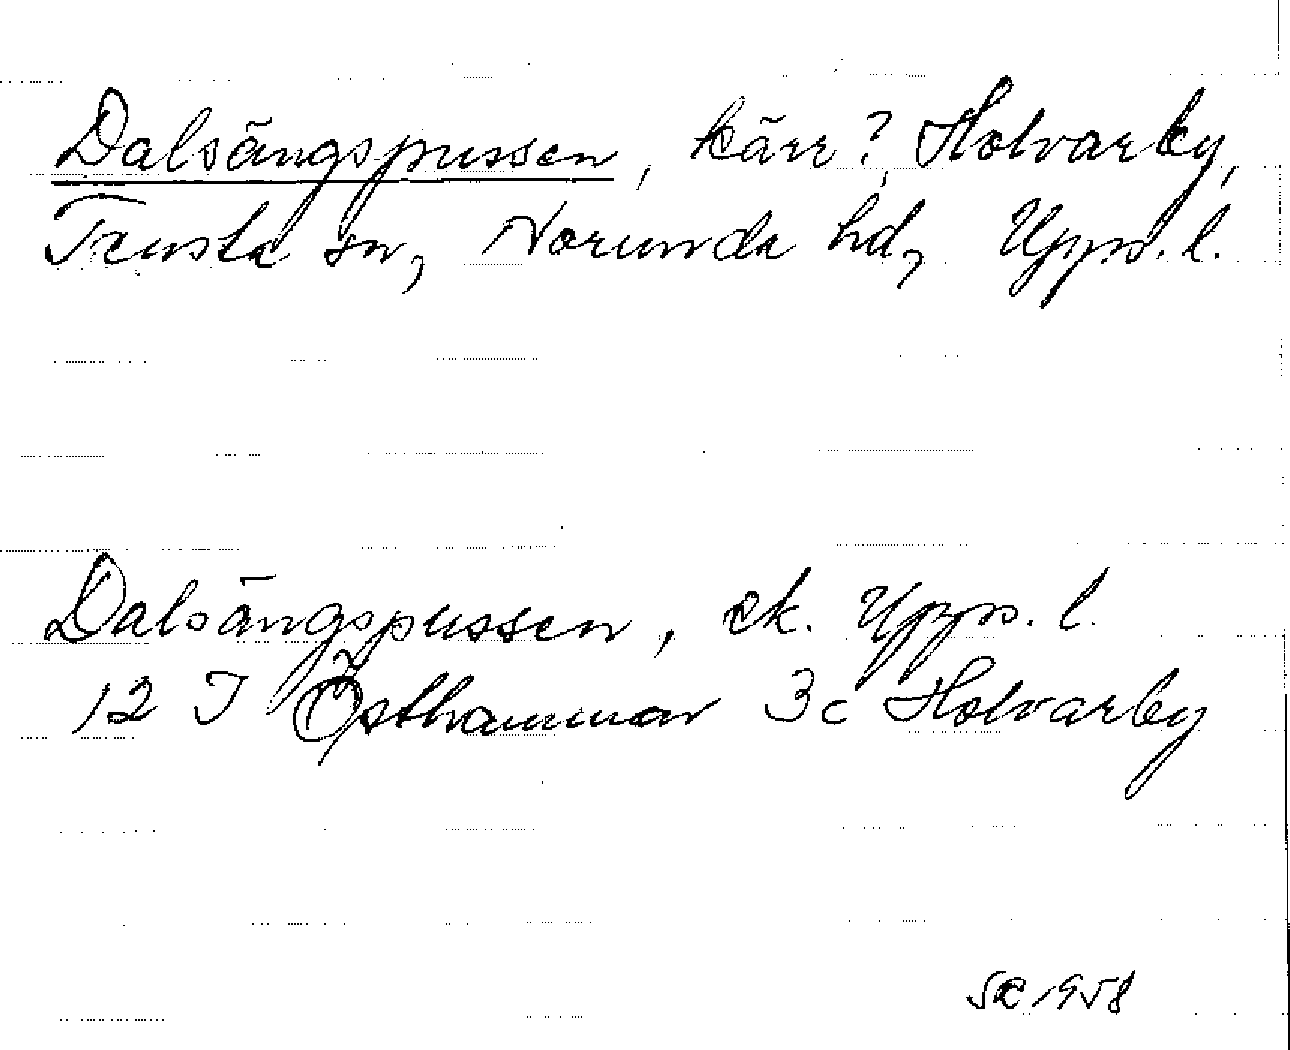 Dalsängspussen, kärr? Holvarby,
Tensta sn, Norunda hd, Upps. l.
Dalsängspussen, ek. Upps. l.
12 I Östhammar 3c Holvarby
1958